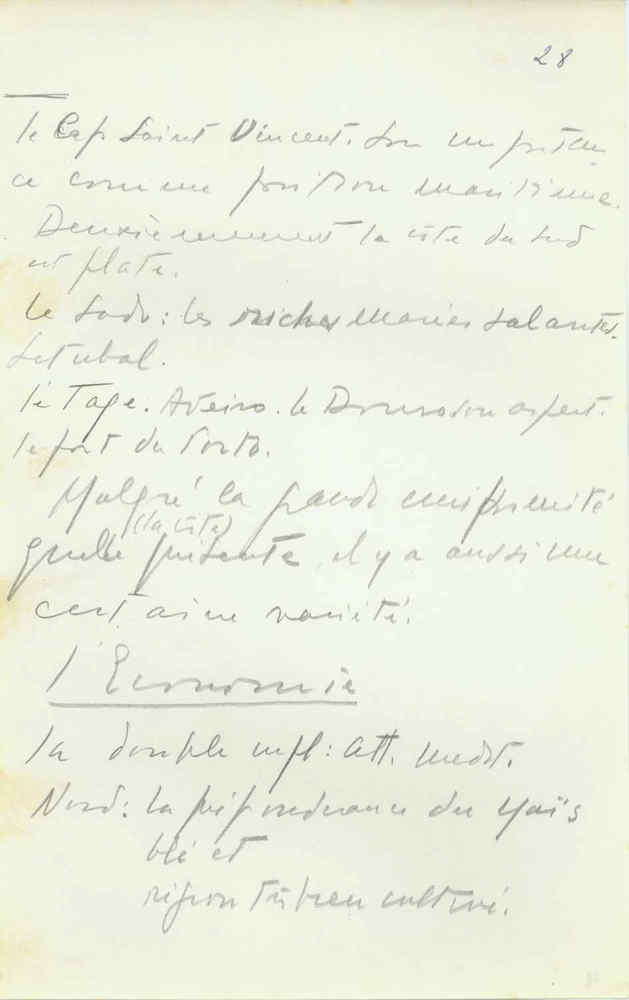 28
le Cap Saint Vincent. Son importan
ce comme position maritime.
Deuxièmement la côte du Sud
est plate.
Le Sado: les riches marais salantes.
Setubal.
le Tage. Aveiro. le Douro son aspect.
le port du Porto.
Malgré la grande uniformité
(la côte)
qu'elle présente, il y a aussi une
certaine varieté.
l'Economie
la double infl: Atl. medit.
Nord: la préponderance du maïs
blé et
région très bien cultivé.